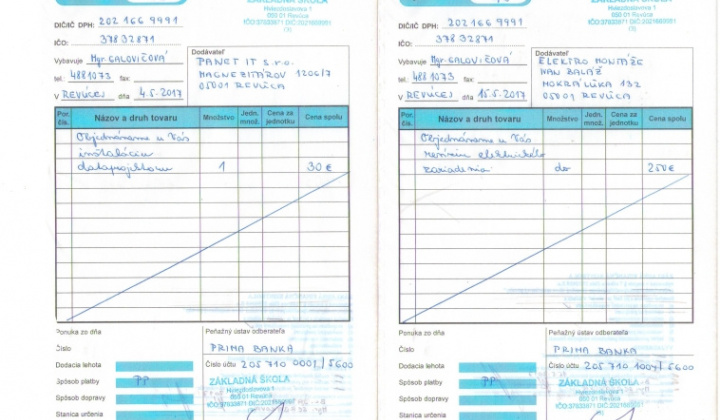 ZÁKLADNÁ ŠKOLA
Hviezdoslavova 1
050 01 Revúca
DIČ/IČ DPH: 202 166 9991
IČO: 37832871
Vybavuje Mgr. GALOVIČOVÁ
tel.: 4881073 fax:
V REVÚCEJ dňa 4.5.2017
Dodávateľ
PANET IT s.r.o.
MAGNEZITÁROV 1206/7
05001 REVÚCA
Por. čís. Názov a druh tovaru Množstvo Jedn. množ. Cena za jednotku Cena spolu
Objednávame u Vás
inštaláciu
dataprojektoru 1 30 €
Ponuka zo dňa
Číslo
Dodacia lehota
Spôsob platby PP
Spôsob dopravy
Stanica určenia
Peňažný ústav odberateľa
PRIMA BANKA
Číslo účtu 205 710 0001 / 5600
ZÁKLADNÁ ŠKOLA
Hviezdoslavova 1
050 01 Revúca
ZÁKLADNÁ ŠKOLA
Hviezdoslavova 1
050 01 Revúca
DIČ/IČ DPH: 202 166 9991
IČO: 37832871
Vybavuje Mgr. GALOVIČOVÁ
tel.: 4881073 fax:
V REVÚCEJ dňa 15.5.2017
Dodávateľ
ELEKTRO MONTÁŽE
IVAN BALÁŽ
MOKRÁ LÚKA 132
05001 REVÚCA
Por. čís. Názov a druh tovaru Množstvo Jedn. množ. Cena za jednotku Cena spolu
Objednávame u Vás
revíziu elektrického
zariadenia do 250 €
Ponuka zo dňa
Číslo
Dodacia lehota
Spôsob platby PP
Spôsob dopravy
Stanica určenia
Peňažný ústav odberateľa
PRIMA BANKA
Číslo účtu 205 710 1007 / 5600
ZÁKLADNÁ ŠKOLA
Hviezdoslavova 1
050 01 Revúca